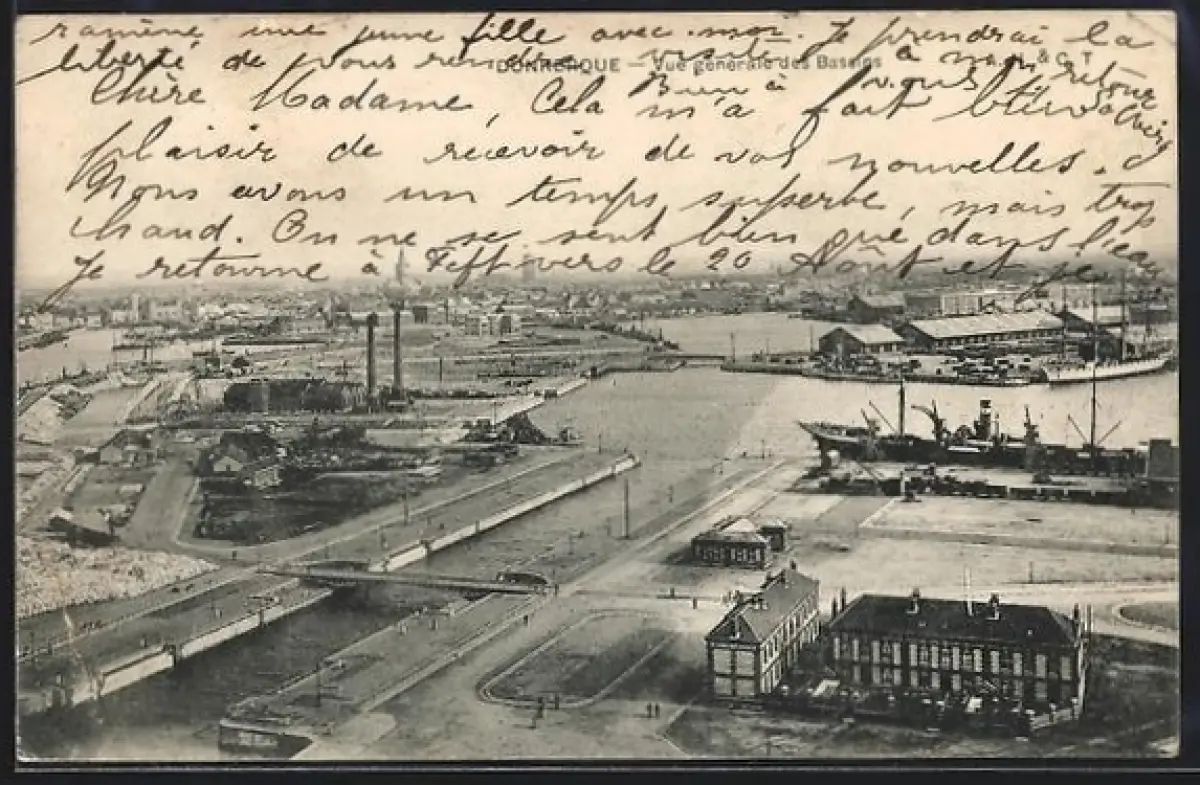 ramène une jeune fille avec moi. Je prendrai la
liberté de vous rendre visite à mon retour
DUNKERQUE — Vue générale des Bassins
Bien à vous
Chère Madame, Cela m'a fait bien
plaisir de recevoir de vos nouvelles.
Nous avons un temps superbe, mais trop
chaud. On ne se sent bien que dans l'eau
Je retourne à vers le 20 Août et je